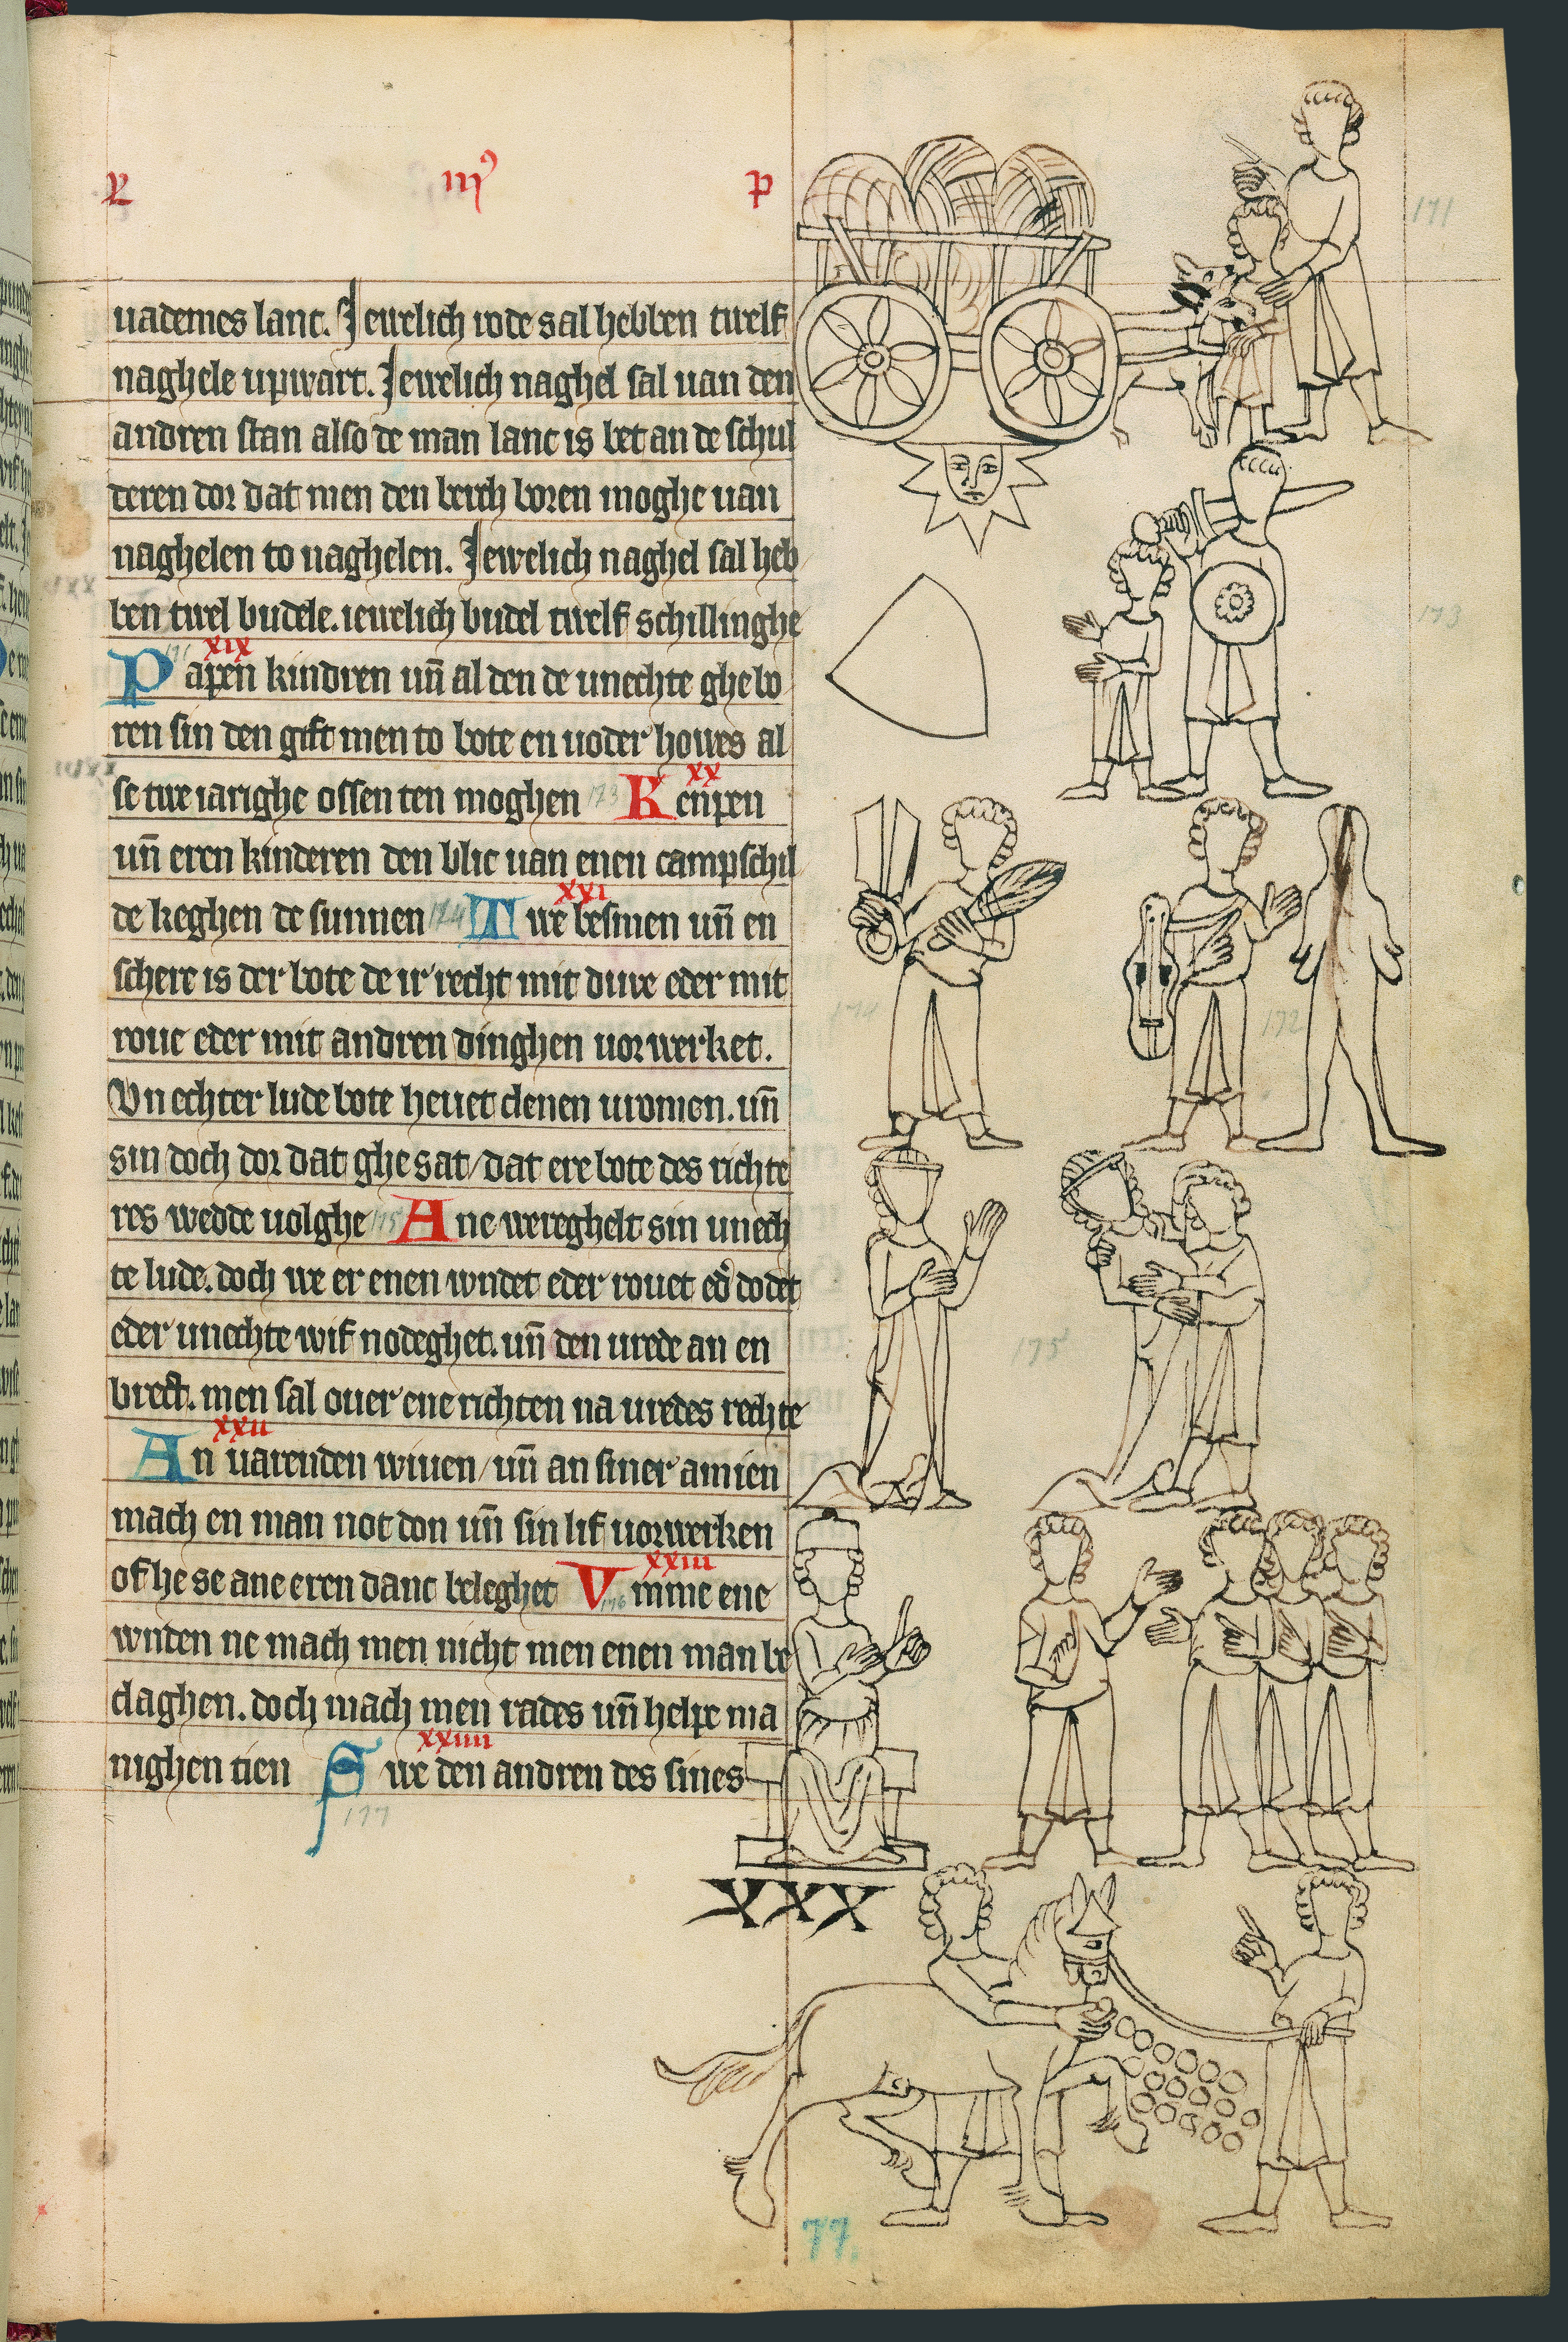 iii⁹
p
uademes lanc. Jewelich rode sal hebben twelf
naghele upwart. Jewelich naghel sal uan den
andren stan also de man lanc is bet an de schul
deren dor dat men den berch boren moghe uan
naghelen to naghelen. Jewelich naghel sal heb
ben twel budele. iewelich budel twelf schillinghe
xix
Papen kindren uñ al den de unechte ghebo
ren sin den gift men to bote en uoder howes al
xx
se twe iarighe ossen ten moghen 173 Kenpen
uñ eren kinderen den blic uan enen campschil
xxi
de keghen de sunnen 174 Twe besmen uñ en
schere is der bote de ir recht mit duve eder mit
roue eder mit andren dinghen uorwerket.
Vnechter lude bote heuet clenen uromen. uñ
sin doch dor dat ghesat/dat ere bote des richte
res wedde uolghe 175 Ane wereghelt sin unech
te lude. doch we er enen wndet eder rouet ed' dodet
eder unechte wif nodeghet. uñ den urede an en
brect. men sal ouer ene richten na uredes rechte
xxii
An uarenden wiuen/uñ an siner amien
mach en man not don uñ sin lif uorwerken
xxiii
of he se ane eren danc beleghet Vmme ene
176
wnden ne mach men nicht men enen man be
claghen. doch mach men rades uñ helpe ma
xxiiii
nighen tien Swe den andren des sines
177
171
173
174
172
175
XXX
77.